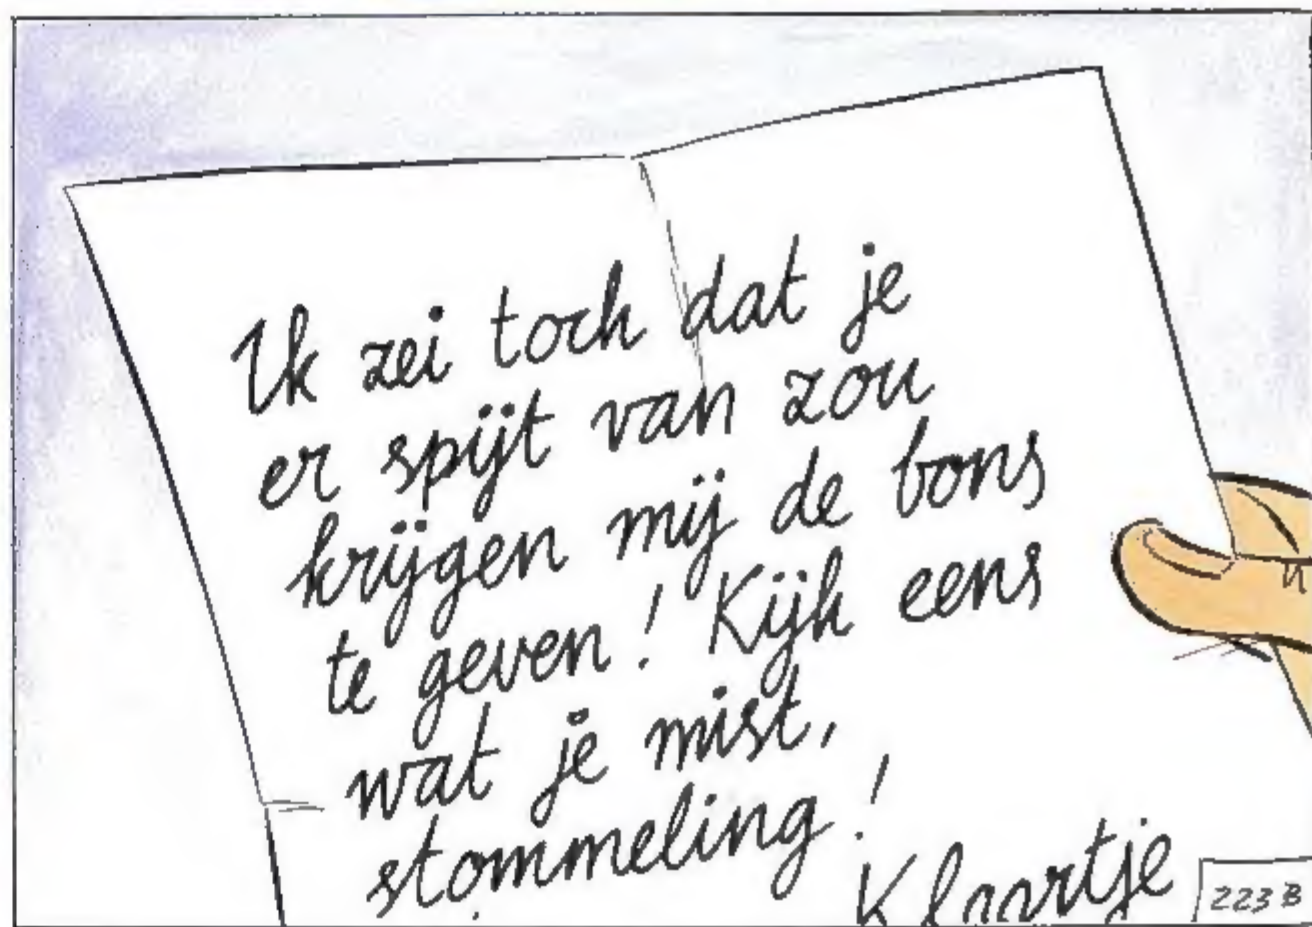 Ik zei toch dat je
er spijt van zou
krijgen mij de bons
te geven! Kijk eens
wat je mist,
stommeling!
Klaartje
223 B